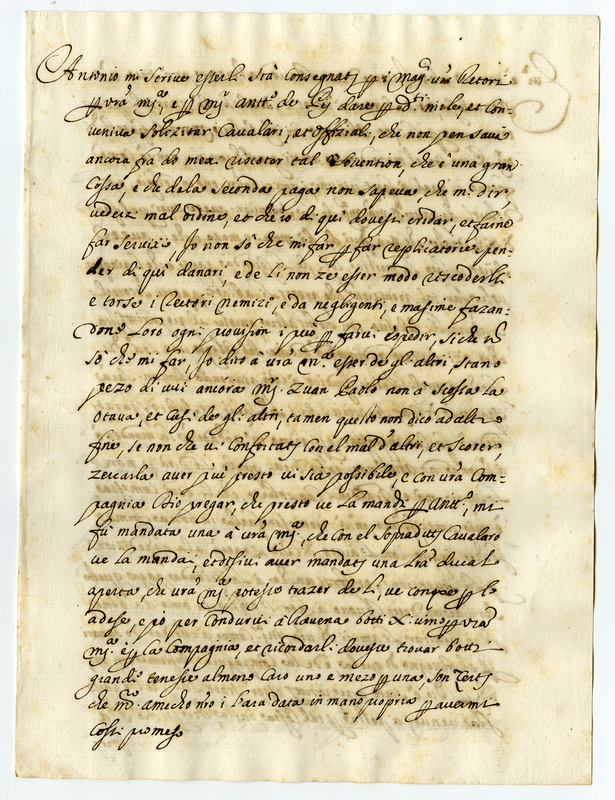 Antonio mi scrive esserli stà consegnati ꝑ i mag.ci uri Retori
ꝑ vrã m.a, e ꝑ m. antt.o de li dare ꝑ d.ti et con-
veniva solizitar Cavalari, et offizial, che non pensava
ancora fra do mexi riscoter tal sovention, che è una gran
Cossa, e che dela seconda paga non sapeva, che mi dir,
vedeva mal ordine, et che io di qui dovessi cridar, et faine
far servixi, Io non sò che mi far ꝑ far replicatorie spen-
der di qui danari, e de li non ze esser modo rescoderli
e torse i Rectori nemizi, e da negligenti, e masime fazan-
done Loro ogni provision i può ꝑ farvi espedir, siche nõ
sò che mi far, Io dito à vrã m.a esser de gl'altri, stano
pezo di vui ancora m. Zuan Paolo non à scossa La
Otava, et Cusi de gl'altri, tamen questo non dico ad altro
fine, se non che vi Confortati Con el mal d'altri, et scorer,
zercarla aver più presto vi sia possibile, e con vrã Com-
pagnia Dio pregar, che presto ve La mandi ꝑ Antt.o, mi
fù mandata una à vrã m.a, che con el sopraditto Cavalaro
ve La mandai, et dissivi aver mandati una Lrã ducal
aperta, che vrã m.a potesse trazer de Li, ve ꝑ lo
adesso, e po per Condurvi à Ravena botti X. vino ꝑ vrã
m.a e ꝑ La Compagnia, et ricordarli dovesse trovar botti
grandi tenesse almeno Caro uno e mezo ꝑ una, son Certi
che m.o amicho nro i L'ara data in mano propria ꝑ avermi
Cossi promesso